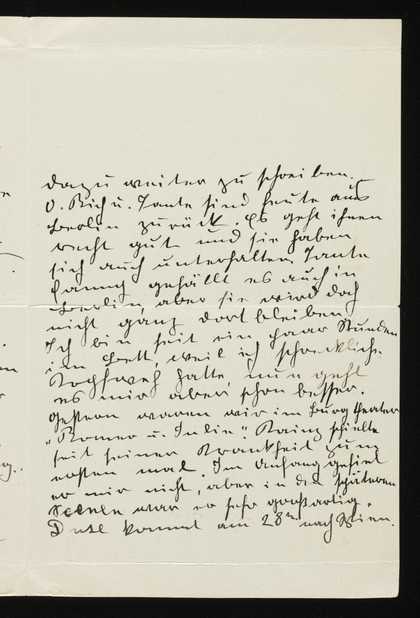 dazu weiter zu schreiben.
O. Rich u. Tante sind heute aus
Berlin zurück. Es geht ihnen
recht gut und sie haben
sich auch unterhalten. Tante
Fanny gefällt es auch in
Berlin, aber sie wird doch
nicht ganz dort bleiben
Ich bin seit ein paar Stunden
im Bett, weil ich schreckliche
Kopfweh hatte, nun geht
es mir aber schon besser.
Gestern waren wir im Burgtheater
„Romeo u. Julie". Kainz spielte
seit seiner Krankheit zum
ersten mal. Im Anfang gefiel
er mir nicht, aber in den späteren
Scenen war er sehr großartig.
Duse kommt am 28ten nach Wien.